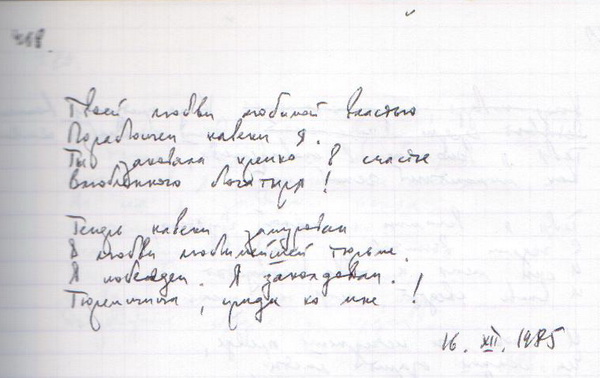 418.
Твоей любви любимой властью
Порабощен навеки я.
Ты заковала крепко в счастье
Влюбленного богатыря!
Теперь навеки замурован
В любви любимейшей тюрьме.
Я побежден. Я заколдован.
Тюремщица, приди ко мне!
16. XII. 1985